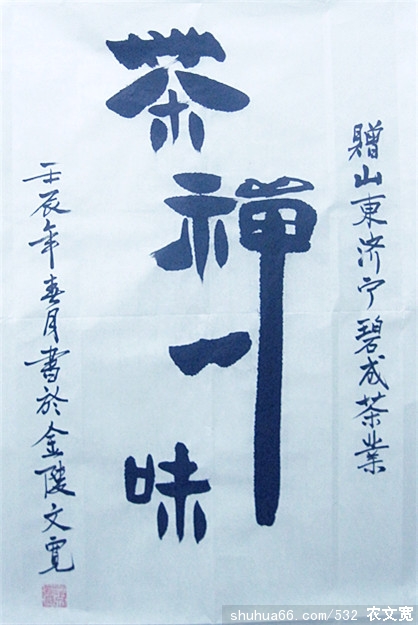 贈山東济宁碧成茶業
茶禅一味
壬辰年春月書於金陵文寬
shuhua66.com/532 农文宽